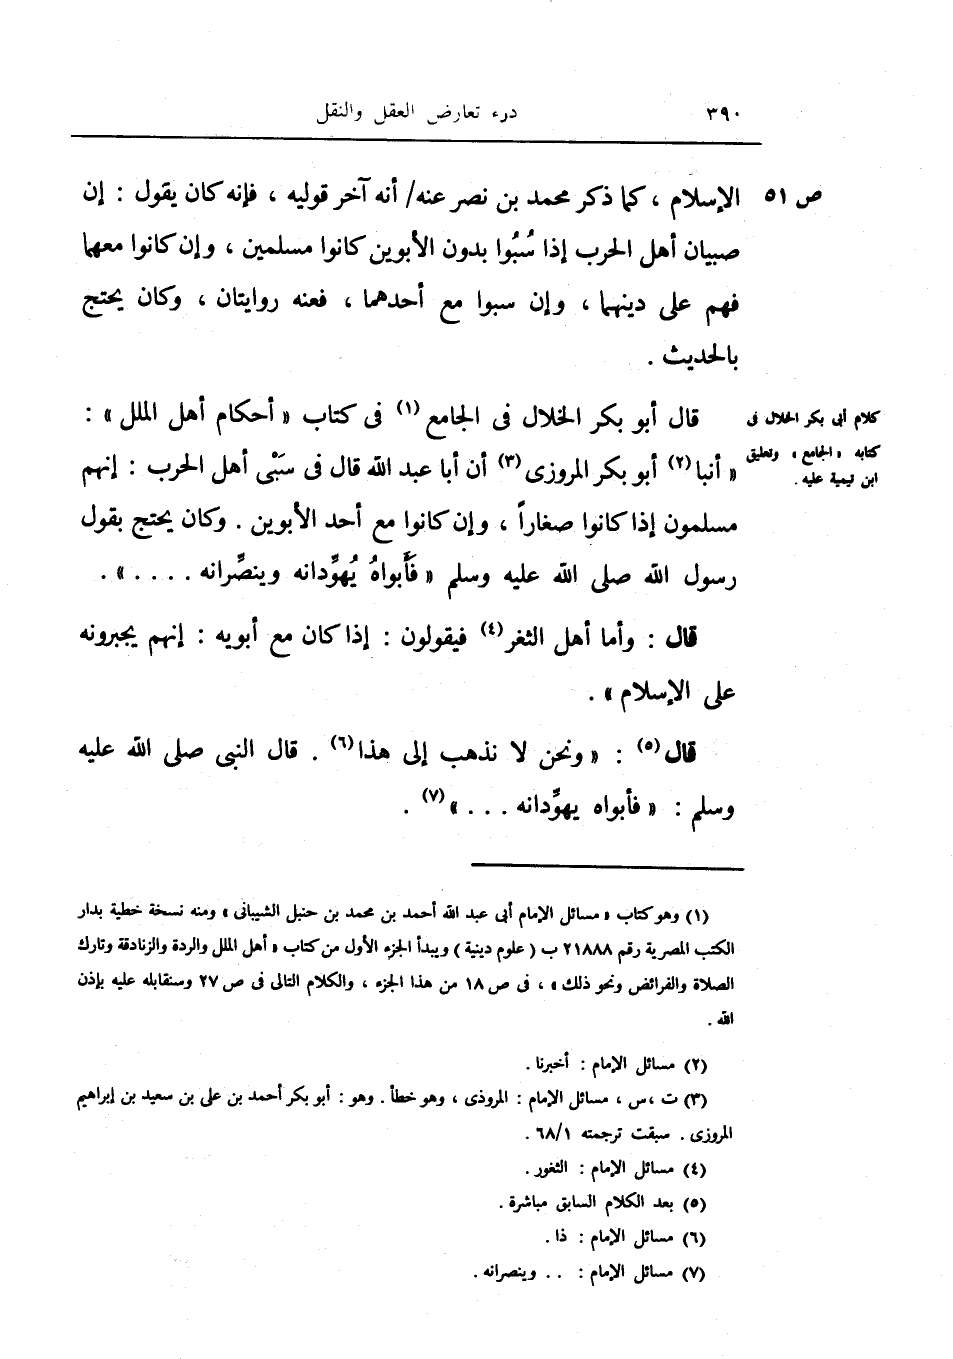 ٣٩٠ درء تعارض العقل والنقل
ص ٥١ الإسلام ، كما ذكر محمد بن نصر عنه/ أنه آخر قوليه ، فإنه كان يقول : إن
صبيان أهل الحرب إذا سُبُوا بدون الأبوين كانوا مسلمين ، وإن كانوا معهما
فهم على دينهما ، وإن سبوا مع أحدهما ، فعنه روايتان ، وكان يحتج
بالحديث .
كلام أبى بكر الخلال فى
كتابه «الجامع» وتعليق
ابن تيمية عليه .
قال أبو بكر الخلال فى الجامع (١) فى كتاب « أحكام أهل الملل » :
« أنبا (٢) أبو بكر المروزى (٣) أن أبا عبد الله قال فى سَبْى أهل الحرب : إنهم
مسلمون إذا كانوا صغاراً ، وإن كانوا مع أحد الأبوين . وكان يحتج بقول
رسول الله صلى الله عليه وسلم « فَأَبواهُ يُهوِّدانه وينصِّرانه . . . . » .
قال : وأما أهل الثغر (٤) فيقولون : إذا كان مع أبويه : إنهم يجبرونه
على الإسلام » .
قال (٥) : « ونحن لا نذهب إلى هذا (٦) . قال النبى صلى الله عليه
وسلم : « فأبواه يهوِّدانه . . . » (٧) .
(١) وهو كتاب « مسائل الإمام أبى عبد الله أحمد بن محمد بن حنبل الشيبانى » ومنه نسخة خطية بدار
الكتب المصرية رقم ٢١٨٨٨ ب ( علوم دينية ) ويبدأ الجزء الأول من كتاب « أهل الملل والردة والزنادقة وتارك
الصلاة والفرائض ونحو ذلك » ، فى ص ١٨ من هذا الجزء ، والكلام التالى فى ص ٢٧ وسنقابله عليه بإذن
الله .
(٢) مسائل الإمام : أخبرنا .
(٣) ت ،س ، مسائل الإمام : المروذى ، وهو خطأ . وهو : أبو بكر أحمد بن على بن سعيد بن إبراهيم
المروزى . سبقت ترجمته ٦٨/١ .
(٤) مسائل الإمام : الثغور .
(٥) بعد الكلام السابق مباشرة .
(٦) مسائل الإمام : ذا .
(٧) مسائل الإمام : . . وينصرانه .